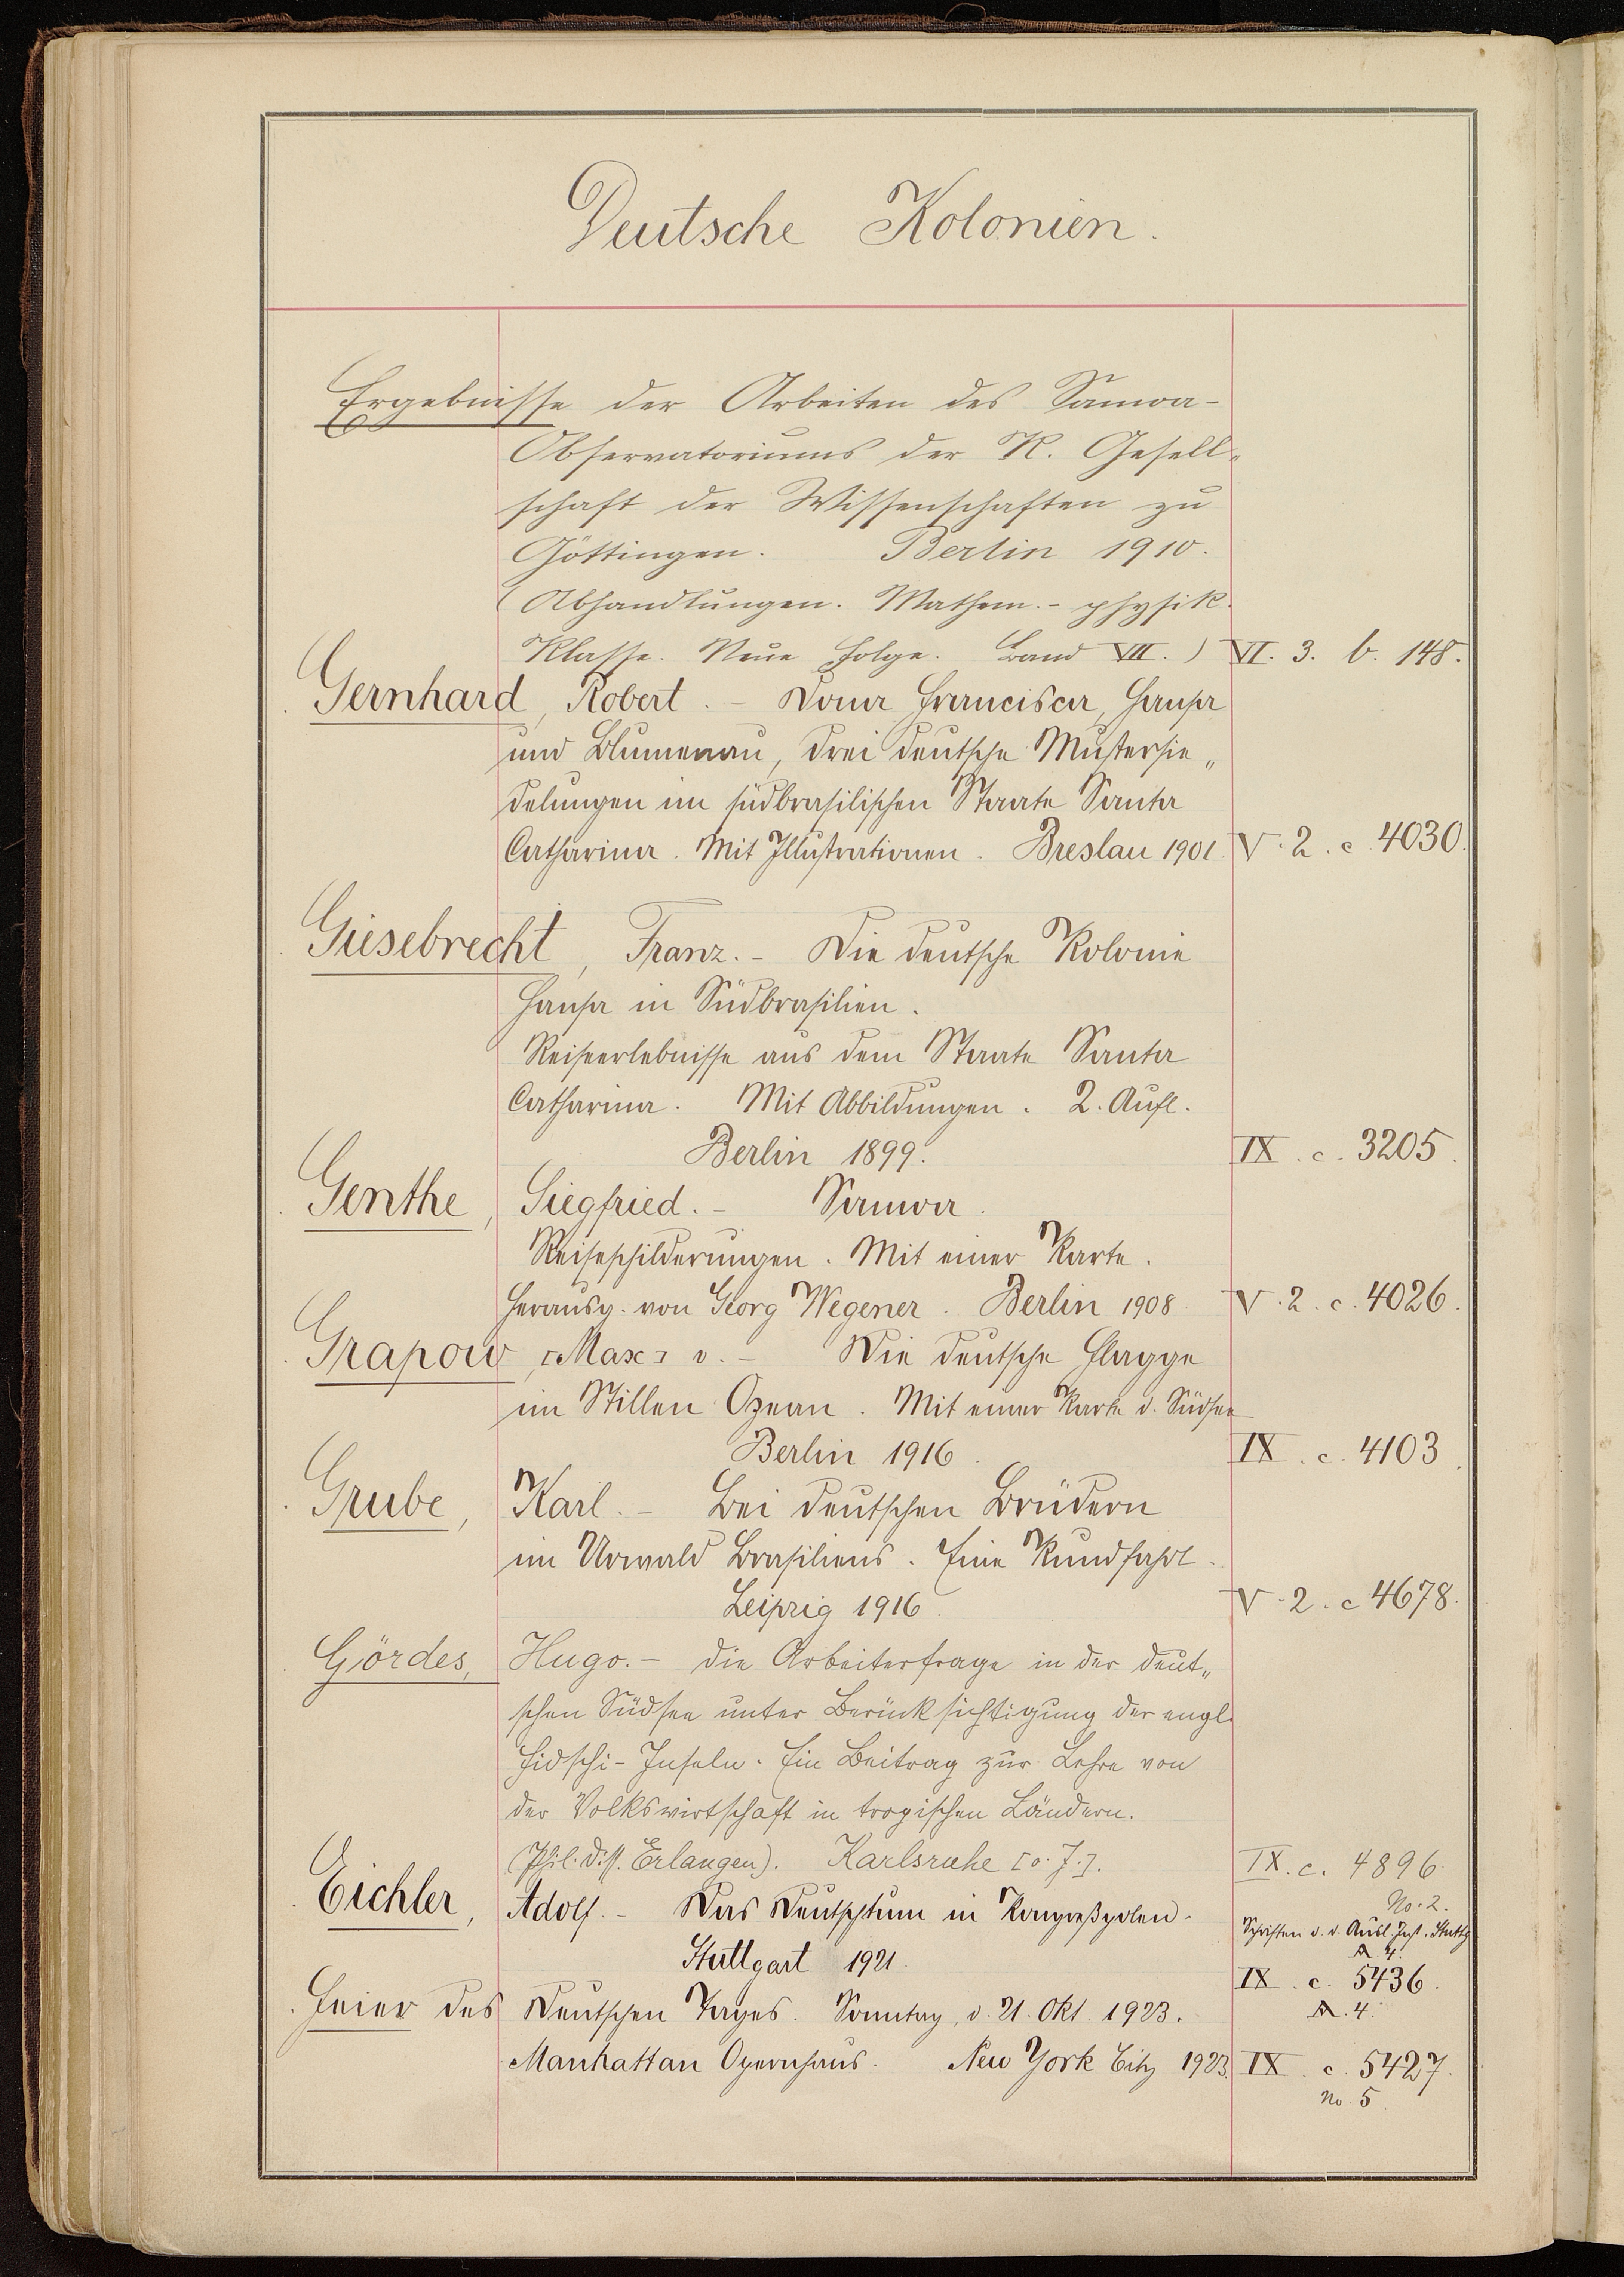 Deutsche Kolonien.
Ergebnisse der Arbeiten des Samoa-
Observatoriums der K. Gesell-
schaft der Wissenschaften zu
Göttingen. Berlin 1910.
(Abhandlungen. Mathem.- physik.
Klasse. Neue Folge. Band VII.) VI. 3. b. 148.
Gernhard, Robert. - Dona Francisca, Hansa
und Blumenau, drei deutsche Mustersie„
delungen im südbrasilischen Staate Santa
Catharina. Mit Illustrationen. Breslau 1901. V. 2. c. 4030.
Giesebrecht, Franz. - Die deutsche Kolonie
Hansa in Südbrasilien.
Reiseerlebnisse aus dem Staate Santa
Catharina. Mit Abbildungen. 2. Aufl.
Berlin 1899. IX. c. 3205.
Genthe, Siegfried. - Samoa.
Reiseschilderungen. Mit einer Karte.
Herausg. von Georg Wegener. Berlin 1908. V. 2. c. 4026.
Grapow, [Max] v. - Die deutsche Flagge
im Stillen Ozean. Mit einer Karte d. Südsee
Berlin 1916. IX. c. 4103.
Grube, Karl. - Bei deutschen Brüdern
im Urwald Brasiliens. Eine Rundfahrt.
Leipzig 1916. V. 2. c 4678.
Gördes, Hugo. - Die Arbeiterfrage in der deut„
schen Südsee unter Berücksichtigung der engl.
Fidschi-Inseln. Ein Beitrag zur Lehre von
der Volkswirtschaft in tropischen Ländern.
(Phil. Diss. Erlangen). Karlsruhe [o. J.]. IX. c. 4896.
No. 2.
Eichler, Adolf. - Das Deutschtum in Kongreßpolen.
Schriften d. d. Ausl. Inst. Stuttg
A 4.
Stuttgart 1921. IX. c. 5436.
A. 4.
Feier des Deutschen Tages. Sonntag, d. 21. Okt. 1923.
Manhattan Opernhaus. New York City 1923. IX. c. 5427.
No. 5.